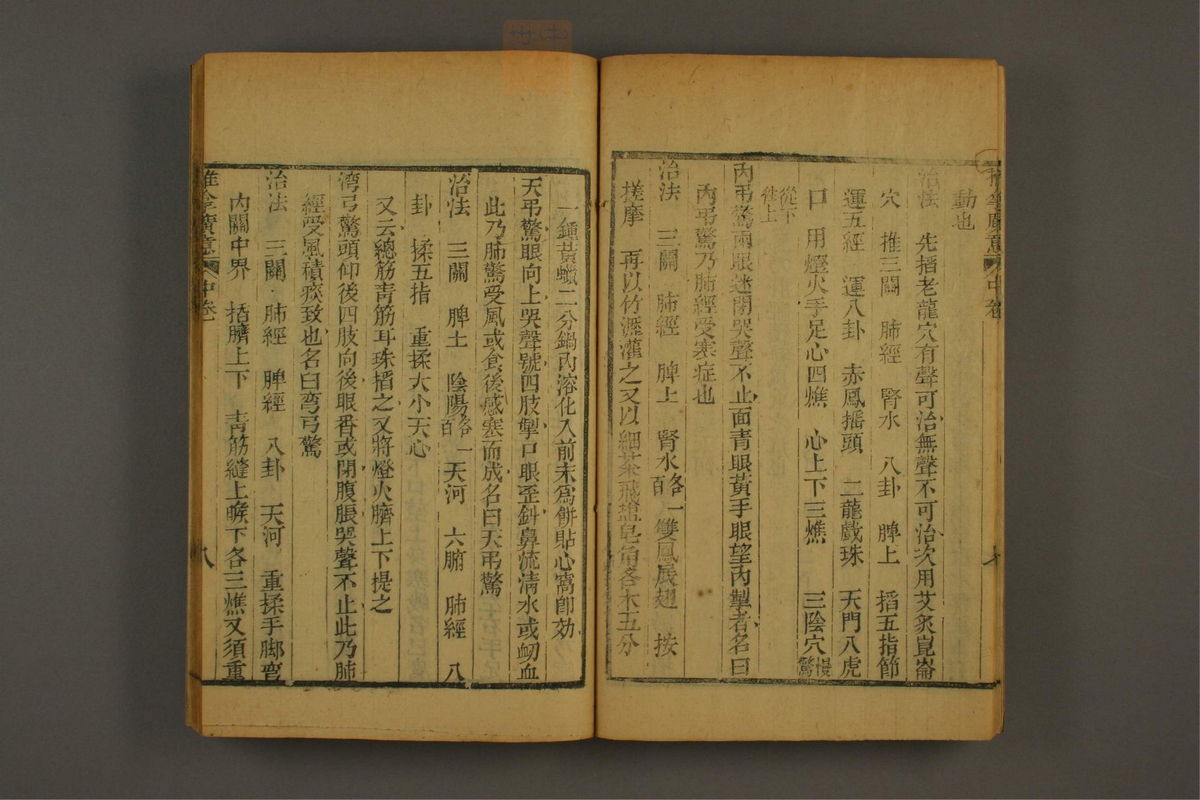 動也
治法　先掐老龍穴有聲可治無聲不可治次用艾灸崑崙
穴　推三關　肺經　腎水　八卦　脾上　掐五指節
運五經　運八卦　赤鳳摇頭　二龍戯珠　天門入虎
口　用燈火手足心四燋　心上下三燋　三陰穴慢驚
從下
徃上
內弔驚兩眼迷閉哭聲不止面青眼黃手眼望內掣者名曰
內弔驚乃肺經受寒症也
治法　三關　肺經　脾土　腎水各一百　雙鳳展翅　按
搓摩　再以竹瀝灌之又以細茶飛塩皂角各末五分
一鍾黃蠟二分鍋內溶化入前末爲餅貼心窩卽効
天弔驚眼向上哭聲號四肢掣口眼歪斜鼻流清水或衂血
此乃肺驚受風或食後感寒而成名曰天弔驚
治法　三關　脾土　陰陽各一百　天河　六腑　肺經　八
卦　揉五指　重揉大小天心
又云總筋青筋耳珠掐之又將燈火臍上下提之
湾弓驚頭仰後四肢向後眼番或閉腹脹哭聲不止此乃肺
經受風積痰致也名曰弯弓驚
治法　三關　肺經　脾經　八卦　天河　重揉手脚弯
內關中界　掐臍上下　青筋縫上喉下各三燋又須重
推拿廣意　中卷　八